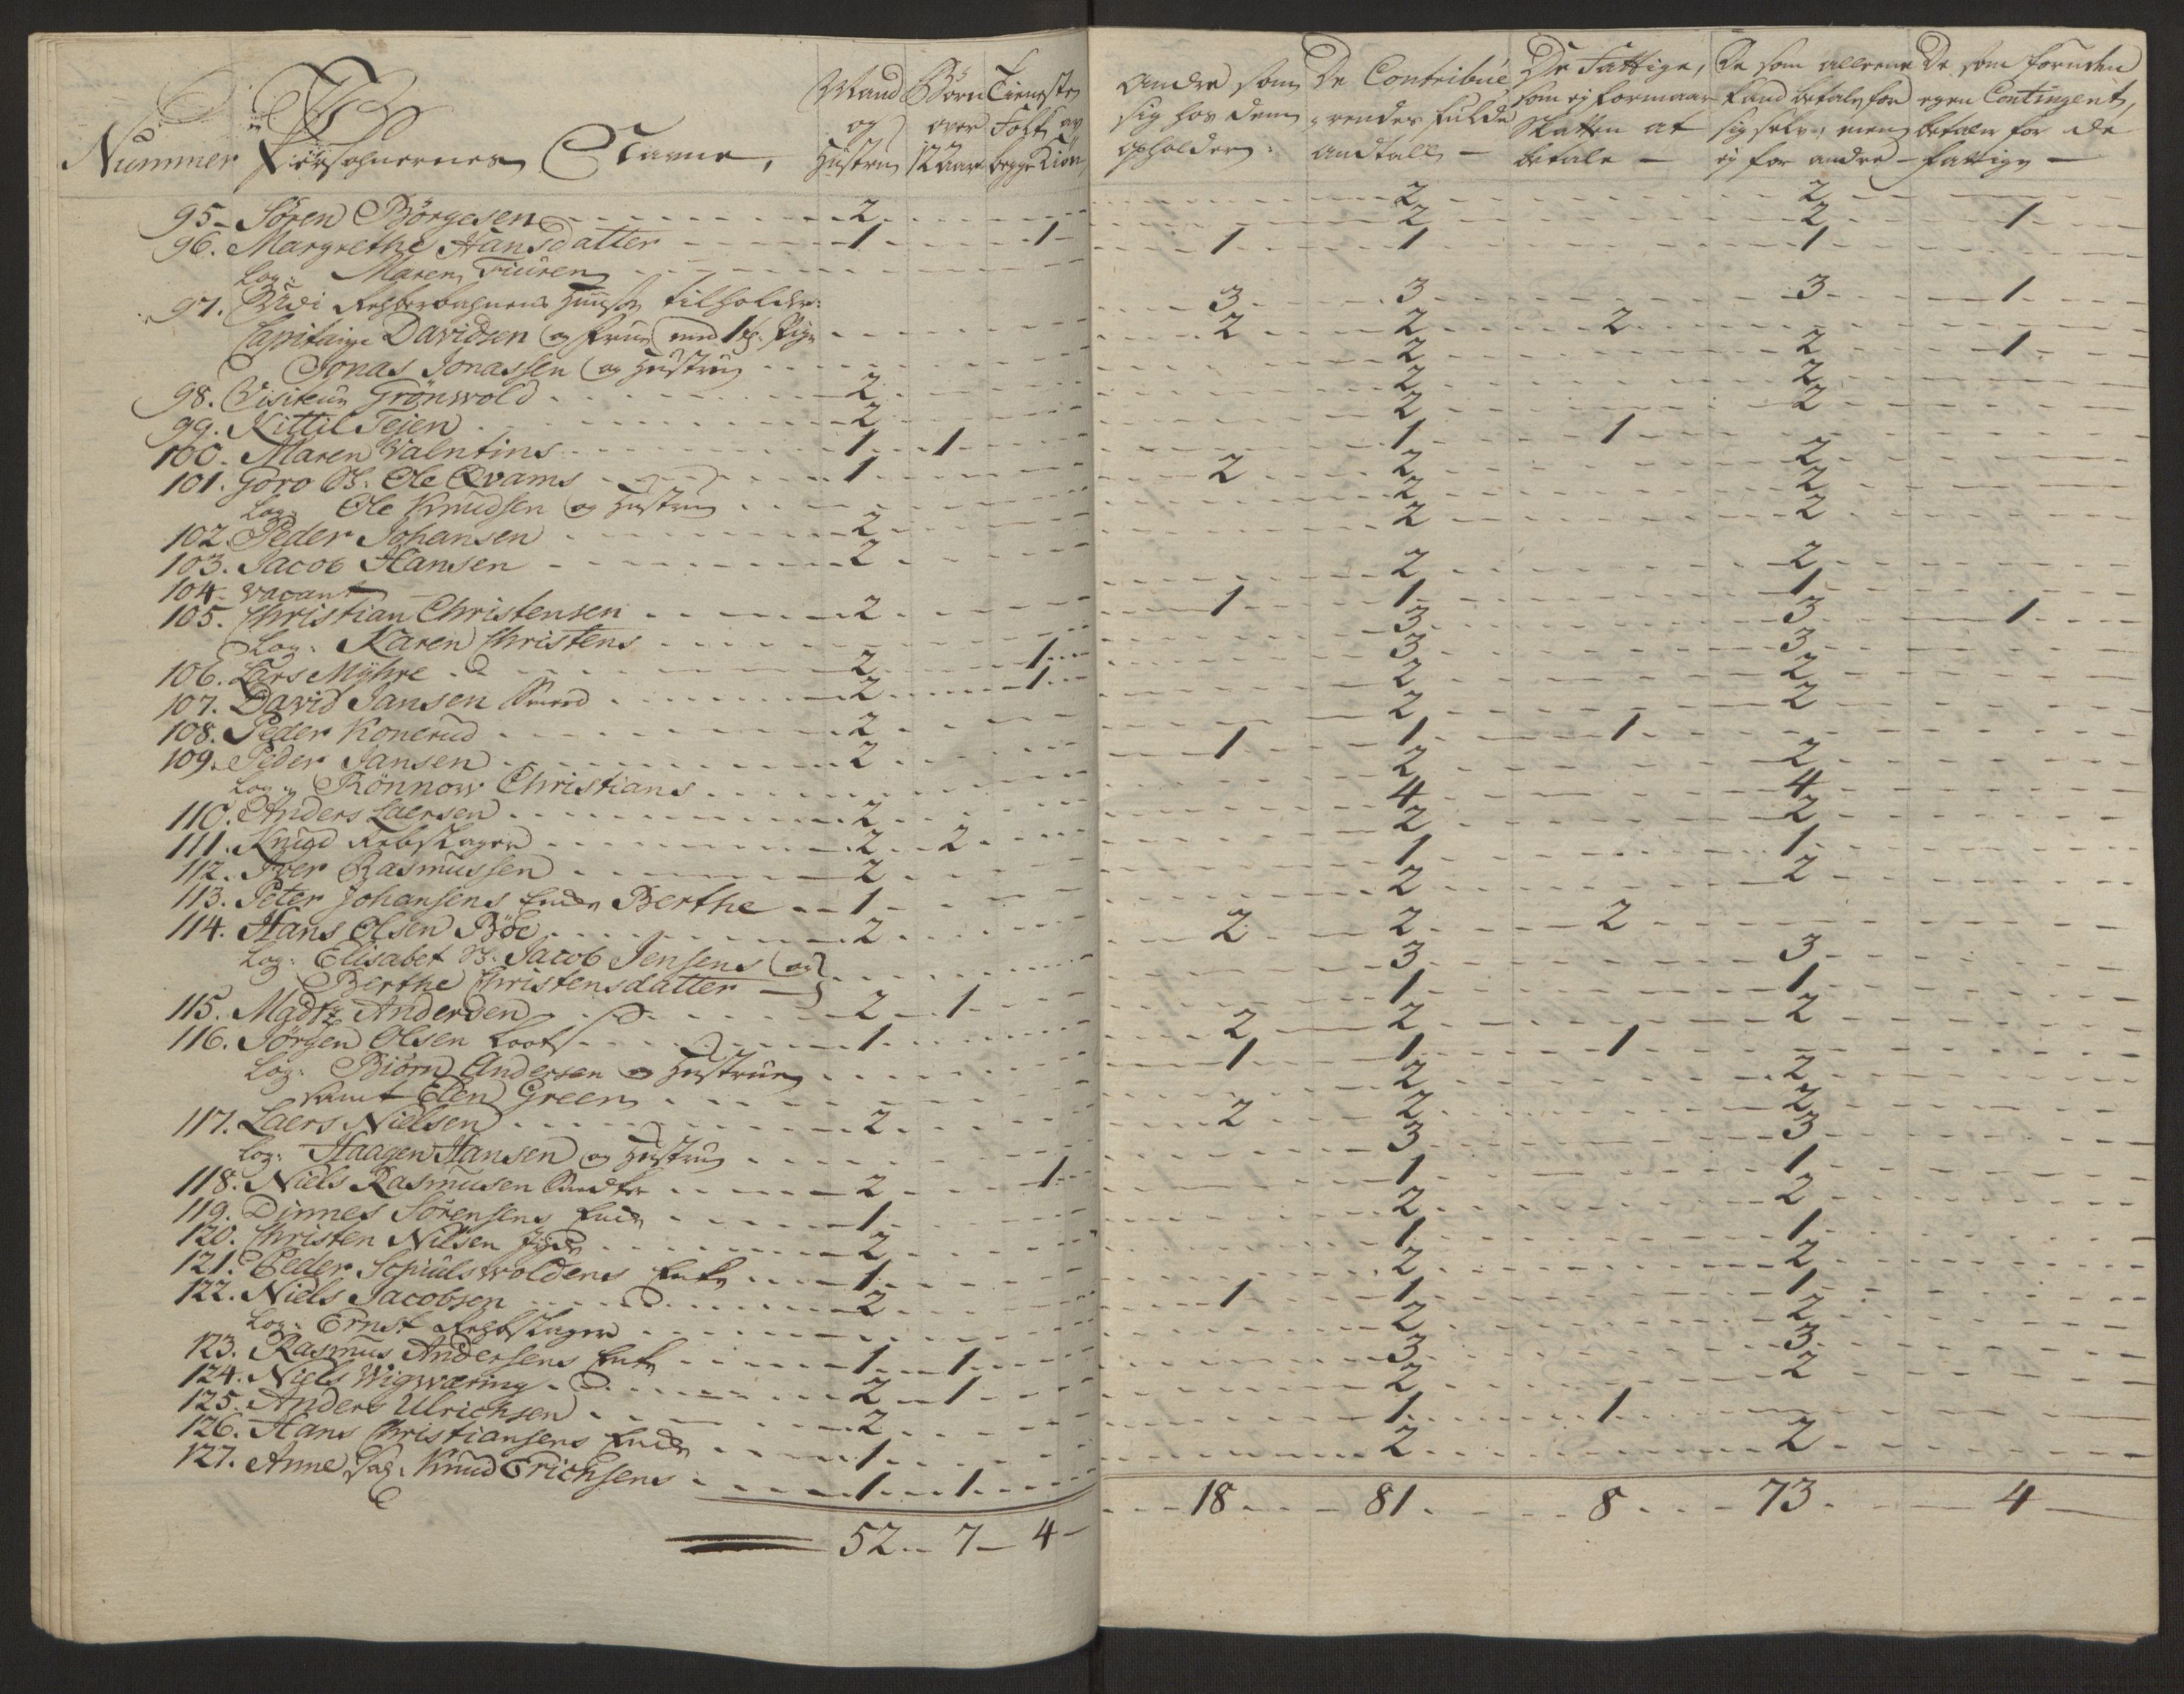 Nummer Persohnernes Navne,
Mand og Hustru
Börn over 12 Aar
Tieneste Folk av begge Kiön
Andre som sig hos dem opholder:
De Contribuerendes fulde Andtall
De Fattige, som ej formaar Skatten at betale
De som alleene kand betale for sig selv, men ej for andre
De som foruden egen Contingent, betaler for de fattige
95 Sören Börgesen 2 2 2
96. Margrethe Hansdatter 1 1 2 2 1
Log: Maren Fiuren 1 1 1
97. Udi tilholder:
Capitaine Davidsen og Frue med 1 tj: Pige 3 3 3 1
Jonas Jonassen og Hustrue 2 2 2
98. Visiteur Grönwold 2 2 2 1
99. Kittil Tejen 2 2 2
100. Maren Valentins 1 1 2 2
101. Goro S. Ole Qvams 1 1 1
Log: Ole Knudsen og Hustrue 2 2 2
102. Peder Johansen 2 2 2
103. Jacob Hansen 2 2 2
104. vacant
105. Christian Christensen 2 2 2
Log: Karen Christens 1 1 1
106. Lars Myhre 2 1 3 3 1
107. David Jansen Smed 2 1 3 3
108. Peder Konerud 2 2 2
109. Peder Jansen 2 2 2
Log: Rönnow Christians 1 1 1
110. Anders Laersen 2 2 2
111. Knud Rebslager 2 2 4 4
112. Iver Rasmussen 2 2 2
113. Peter Johansens Enke Berthe 1 1 1
114. Hans Olsen Böe 2 2 2
Log: Elisabet S. Jacob Jensens og
Berthe Christensdatter 2 2 2
115. Madtz Andersen 2 1 3 3
116. Jörgen Olsen Loots 1 1 1
Log: Biörn Andersen og Hustrue 2 2 2
samt Elen Green 1 1 1
117. Laers Nielsen 2 2 2
Log: Haagen Hansen og Hustrue 2 2 2
118. Niels Rasmusen 2 1 3 3
119. Dinnes Sörensens Enke 1 1 1
120. Christen Nilsen Jyde 2 2 2
121. Peder Schiulswoldens Enke 1 1 1
122. Niels Jacobsen 2 2 2
Log: Ernst Rebslager 1 1 1
123. Rasmus Andersens Enke 1 1 2 2
124. Niels Wigwæring 2 1 3 3
125. Anders Ulrichsen 2 2 2
126. Hans Christiansens Enke 1 1 1
127. Anne Sal: Knud Erichsens 1 1 2 2
52 7 4 18 81 8 73 4